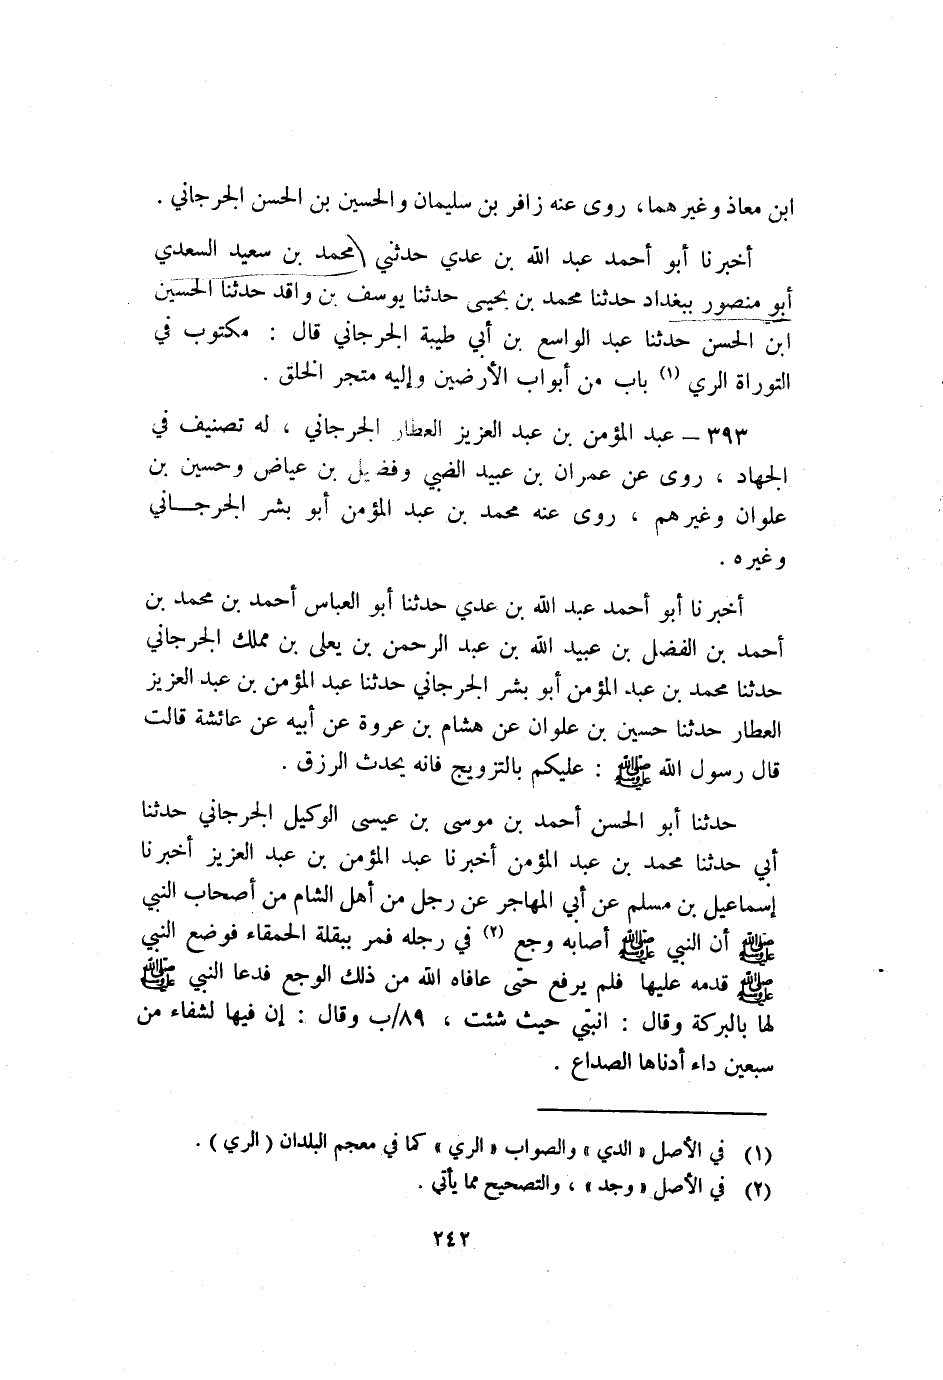 ابن معاذ وغيرهما، روى عنه زافر بن سليمان والحسين بن الحسن الجرجاني .
أخبرنا أبو أحمد عبد الله بن عدي حدثني محمد بن سعيد السعدي
أبو منصور ببغداد حدثنا محمد بن يحيى حدثنا يوسف بن واقد حدثنا الحسين
ابن الحسن حدثنا عبد الواسع بن أبي طيبة الجرجاني قال : مكتوب في
التوراة الري (١) باب من أبواب الأرضين وإليه متجر الخلق .
٣٩٣ ــ عبد المؤمن بن عبد العزيز العطار الجرجاني ، له تصنيف في
الجهاد ، روى عن عمران بن عبيد الضبي وفضيل بن عياض وحسين بن
علوان وغيرهم ، روى عنه محمد بن عبد المؤمن أبو بشر الجرجـــاني
وغيره .
أخبرنا أبو أحمد عبد الله بن عدي حدثنا أبو العباس أحمد بن محمد بن
أحمد بن الفضل بن عبيد الله بن عبد الرحمن بن يعلى بن مملك الجرجاني
حدثنا محمد بن عبد المؤمن أبو بشر الجرجاني حدثنا عبد المؤمن بن عبد العزيز
العطار حدثنا حسين بن علوان عن هشام بن عروة عن أبيه عن عائشة قالت
قال رسول الله ﷺ : عليكم بالتزويج فانه يحدث الرزق .
حدثنا أبو الحسن أحمد بن موسى بن عيسى الوكيل الجرجاني حدثنا
أبي حدثنا محمد بن عبد المؤمن أخبرنا عبد المؤمن بن عبد العزيز أخبرنا
إسماعيل بن مسلم عن أبي المهاجر عن رجل من أهل الشام من أصحاب النبي
ﷺ أن النبي ﷺ أصابه وجع (٢) في رجله فمر ببقلة الحمقاء فوضع النبي
ﷺ قدمه عليها فلم يرفع حتى عافاه الله من ذلك الوجع فدعا النبي ﷺ
لها بالبركة وقال : انبتي حيث شئت ، ٨٩/ب وقال : إن فيها لشفاء من
سبعين داء أدناها الصداع .
(١) في الأصل « الدي » والصواب « الري » كما في معجم البلدان ( الري ) .
(٢) في الأصل « وجد » ، والتصحيح مما يأتي .
٢٤٢